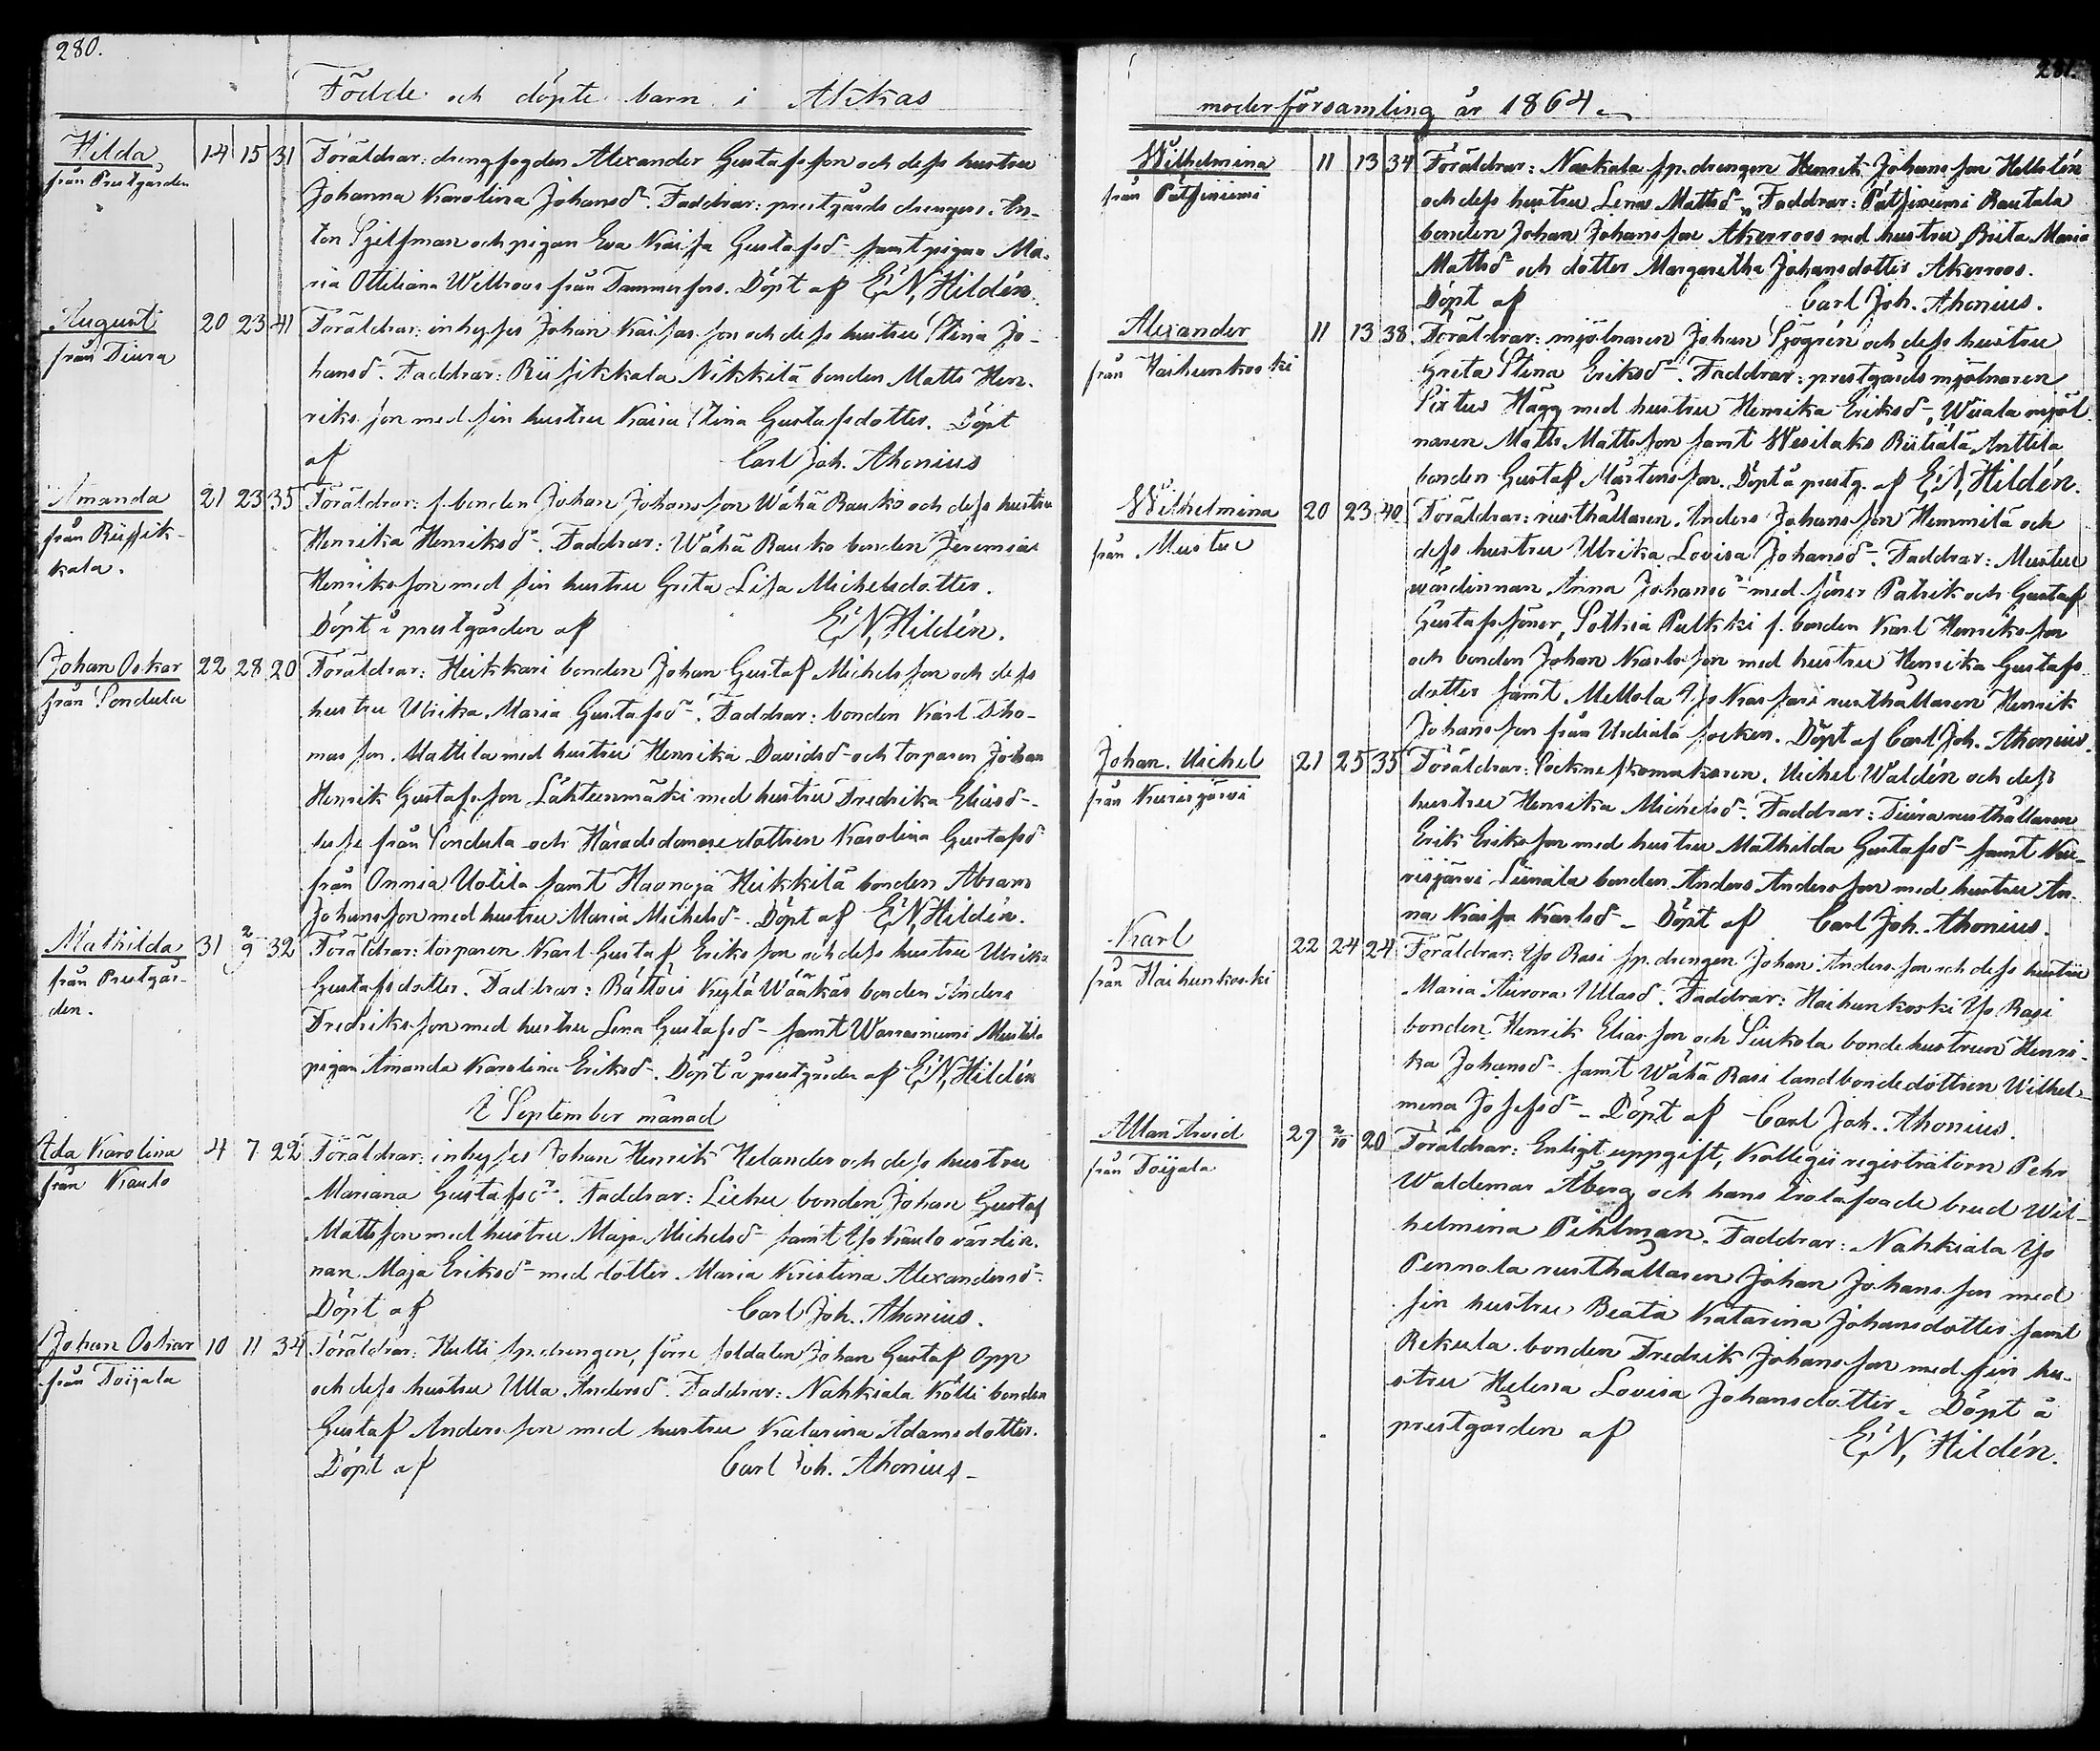 280.
Födde och döpte barn i Akkas
Hilda
från Prestgården
14 15 31
Föräldrar: drengfogden Alexander Gustafsson och dess hustru
Johanna Karolina Johansd. Faddrar: prestgårds drengen An-
ton Sjelfman och pigan Eva Kaisa Gustafsd samt pigan Ma-
ria Ottiliana Wellroos från Tammerfors. Döpt af E, N, Hildén.
August
från Tiura
20 23 41
Föräldrar: inhyses Johan Kaisasson och dess hustru Stina Jo-
hansd. Faddrar: Riisikkala Nikkilä bonden Matts Hen-
riksson med sin hustru Kaisa Stina Gustafsdotter. Döpt
af Carl Joh. Ahonius
Amanda
från Riisik-
kala.
21 23 35
Föräldrar: f. bonden Johan Johansson Wähä Rauko och dess hustru
Henrika Henriksd. Faddrar: Wähä Rauko bonden Jeremias
Henriksson med sin hustru Greta Lisa Michelsdotter.
Döpt i prestgården af E, N, Hildén.
Johan Oskar
från Sondula
22 28 20
Föräldrar: Heikkari bonden Johan Gustaf Michelsson och dess
hustru Ulrika Maria Gustafsd. Faddrar: bonden Karl Tho-
masson Mattila med hustru Henrika Davidsd och torparen Johan
Henrik Gustafsson Lähteenmäki med hustru Fredrika Eliasd
från Sonduta och Häradsdomaredottren Karolina Gustafsd
från Onnia Uotila samt Haonoja Heikkilä bonden Abram
Johansson med hustru Maria Michelsd. Döpt af E, N, Hildén.
Mathilda
från Prestgår-
den.
31 2/9 32
Föräldrar: torparen Karl Gustaf Eriksson och dess hustru Ulrika
Gustafsdotter. Faddrar: Rättöis Kylä Wääkäs bonden Anders
Fredriksson med hustru Lena Gustafsd samt Warrasniemi Mustila
pigan Amanda Karolina Eriksd. Döpt å prestgården af E, N, Hildén
I September månad
Ida Karolina
från Kauto
4 7 22
Föräldrar: inhyses Johan Henrik Helander och dess hustru
Mariana Gustafsd. Faddrar: Liehu bonden Johan Gustaf
Mattsson med hustru Maja Michelsd samt Yso Kauto värdin-
nan Maja Eriksd med dotter Maria Kristina Alexandersd.
Döpt af Carl Joh. Ahonius.
Johan Oskar
från Toijala
10 11 34
Föräldrar: Hutti sp. drengen, förre soldaten Johan Gustaf Opp
och dess hustru Ulla Andersd. Faddrar: Nahkiala Kölli bonden
Gustaf Andersson med hustru Katarina Adamsdotter.
Döpt af Carl Joh. Ahonius
281.
moderförsamling år 1864.
Wilhelmina
från Pätsiniemi
11 13 34
Föräldrar: Naskala sp. drengen Henrik Johansson Hellstén
och dess hustru Lena Mattsd. Faddrar: Pätsiniemi Rautala
bonden Johan Johansson Akerroos med hustru Brita Maria
Mattsd och dotter Margaretha Johansdotter Akerroos.
Döpt af Carl Joh. Ahonius.
Alexander
från Haihunkoski
11 13 38
Föräldrar: mjölnaren Johan Sjögrén och dess hustru
Greta Stina Eriksd. Faddrar: prestgårds mjölnaren
Sixtus Hägg med hustru Henrika Eriksd, Wiiala mjöl-
naren Matts Mattsson samt Wesilaks Riitiälä Anttila
bonden Gustaf Mårtensson. Döpt å prestg. af E, N, Hildén.
Wilhelmina
från Mustu
20 23 40
Föräldrar: rusthållaren Anders Johansson Hemmilä och
dess hustru Ulrika Lovisa Johansd. Faddrar: Mustu
wärdinnan Anna Johansd med söner Patrik och Gustaf
Gustafssöner, Sothia Pulkki f. bonden Karl Henriksson
och bonden Johan Karlsson med hustru Henrika Gustafs-
dotter samt Mellola Yso Kaspari rusthållaren Henrik
Johansson från Urdiala socken. Döpt af Carl Joh. Ahonius.
Johan Michel
från Kurisjärvi
21 25 35
Föräldrar: Sockneskomakaren Michel Waldén och dess
hustru Henrika Michelsd. Faddrar: Tiura rusthållaren
Erik Eriksson med hustru Mathilda Gustafsd samt Ku-
risjärvi Siimala bonden Anders Andersson med hustru An-
na Kaisa Karlsd. Döpt af Carl Joh. Ahonius.
Karl
från Haihunkoski
22 24 24
Föräldrar: Yso Rasi sp. drengen Johan Andersson och dess hustru
Maria Aurora Ullasd. Faddrar: Haihunkoski Yso Rasi
bonden Henrik Eliasson och Siukola bondehustrun Henri-
ka Johansd samt Wähä Rasi landbondedottren Wilhel-
mina Josefsd. Döpt af Carl Joh. Ahonius.
Allan Arvid
från Toijala
29 2/10 20
Föräldrar: Enligt uppgift, Kollegii registratorn Pehr
Waldemar Åberg och hans trolofvade brud Wil-
helmina Pihlman. Faddrar: Nahkiala Yso
Pennola rusthållaren Johan Johansson med
sin hustru Beata Katarina Johansdotter samt
Rekula bonden Fredrik Johansson med sin hu-
stru Helena Lovisa Johansdotter. Döpt å
prestgården af E, N, Hildén.